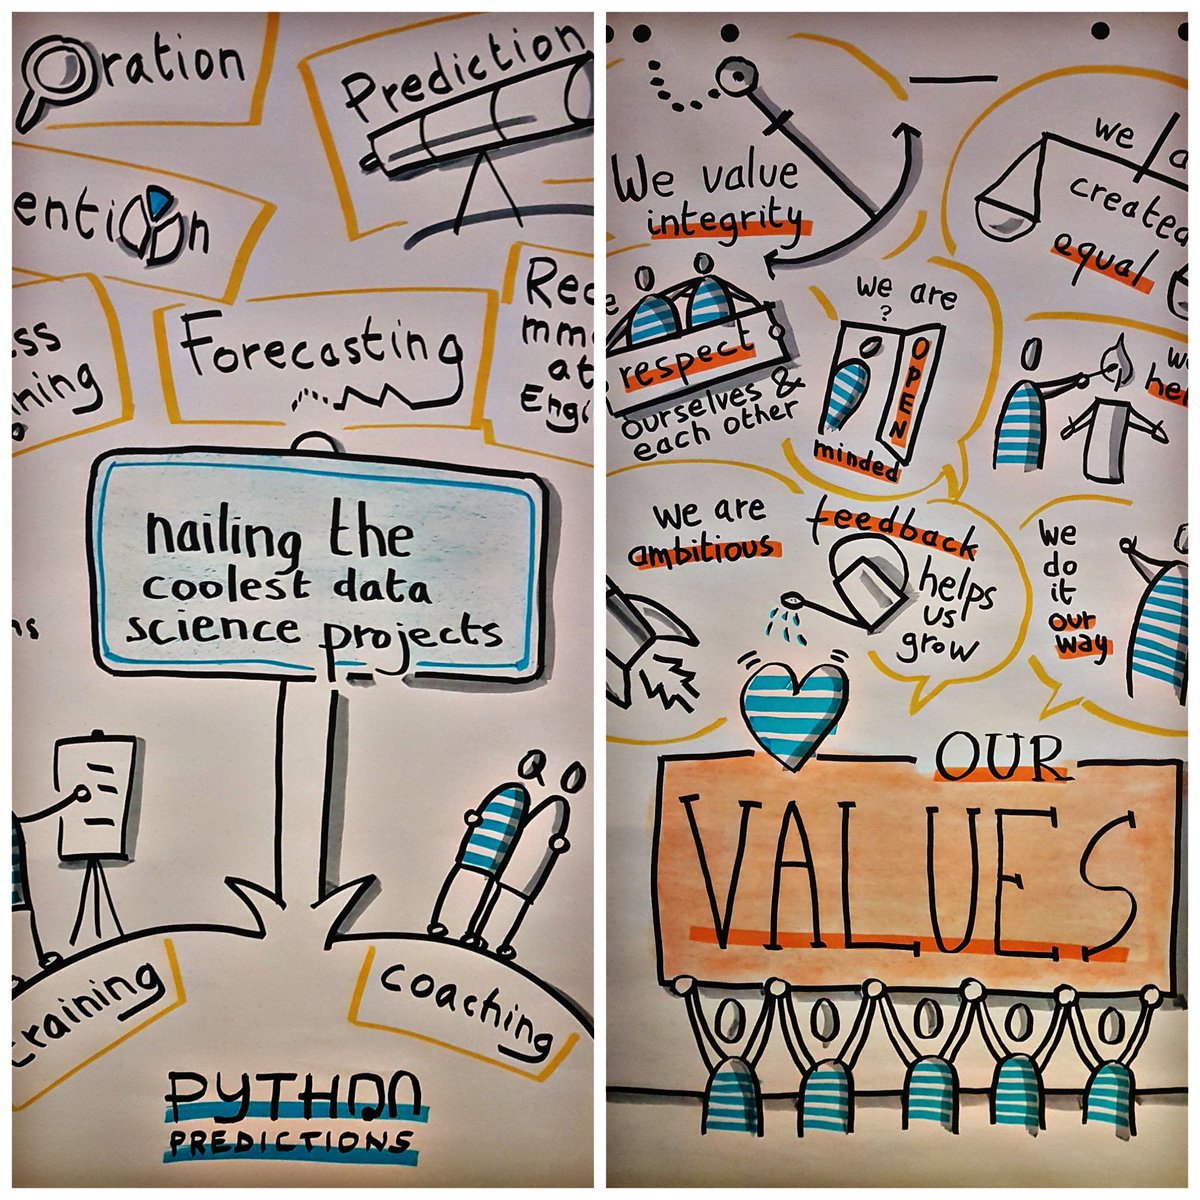 ration
Prediction
ention
ss
ning
Forecasting
Rec
mm
at
Engi
nailing the
coolest data
science projects
ns
training
coaching
PYTHON
PREDICTIONS
We value
integrity
we a
created
equal
respect
ourselves &
each other
we are
?
OPEN
minded
we
hel
we are
ambitious
feedback
helps
us
grow
we
do
it
our
way
OUR
VALUES